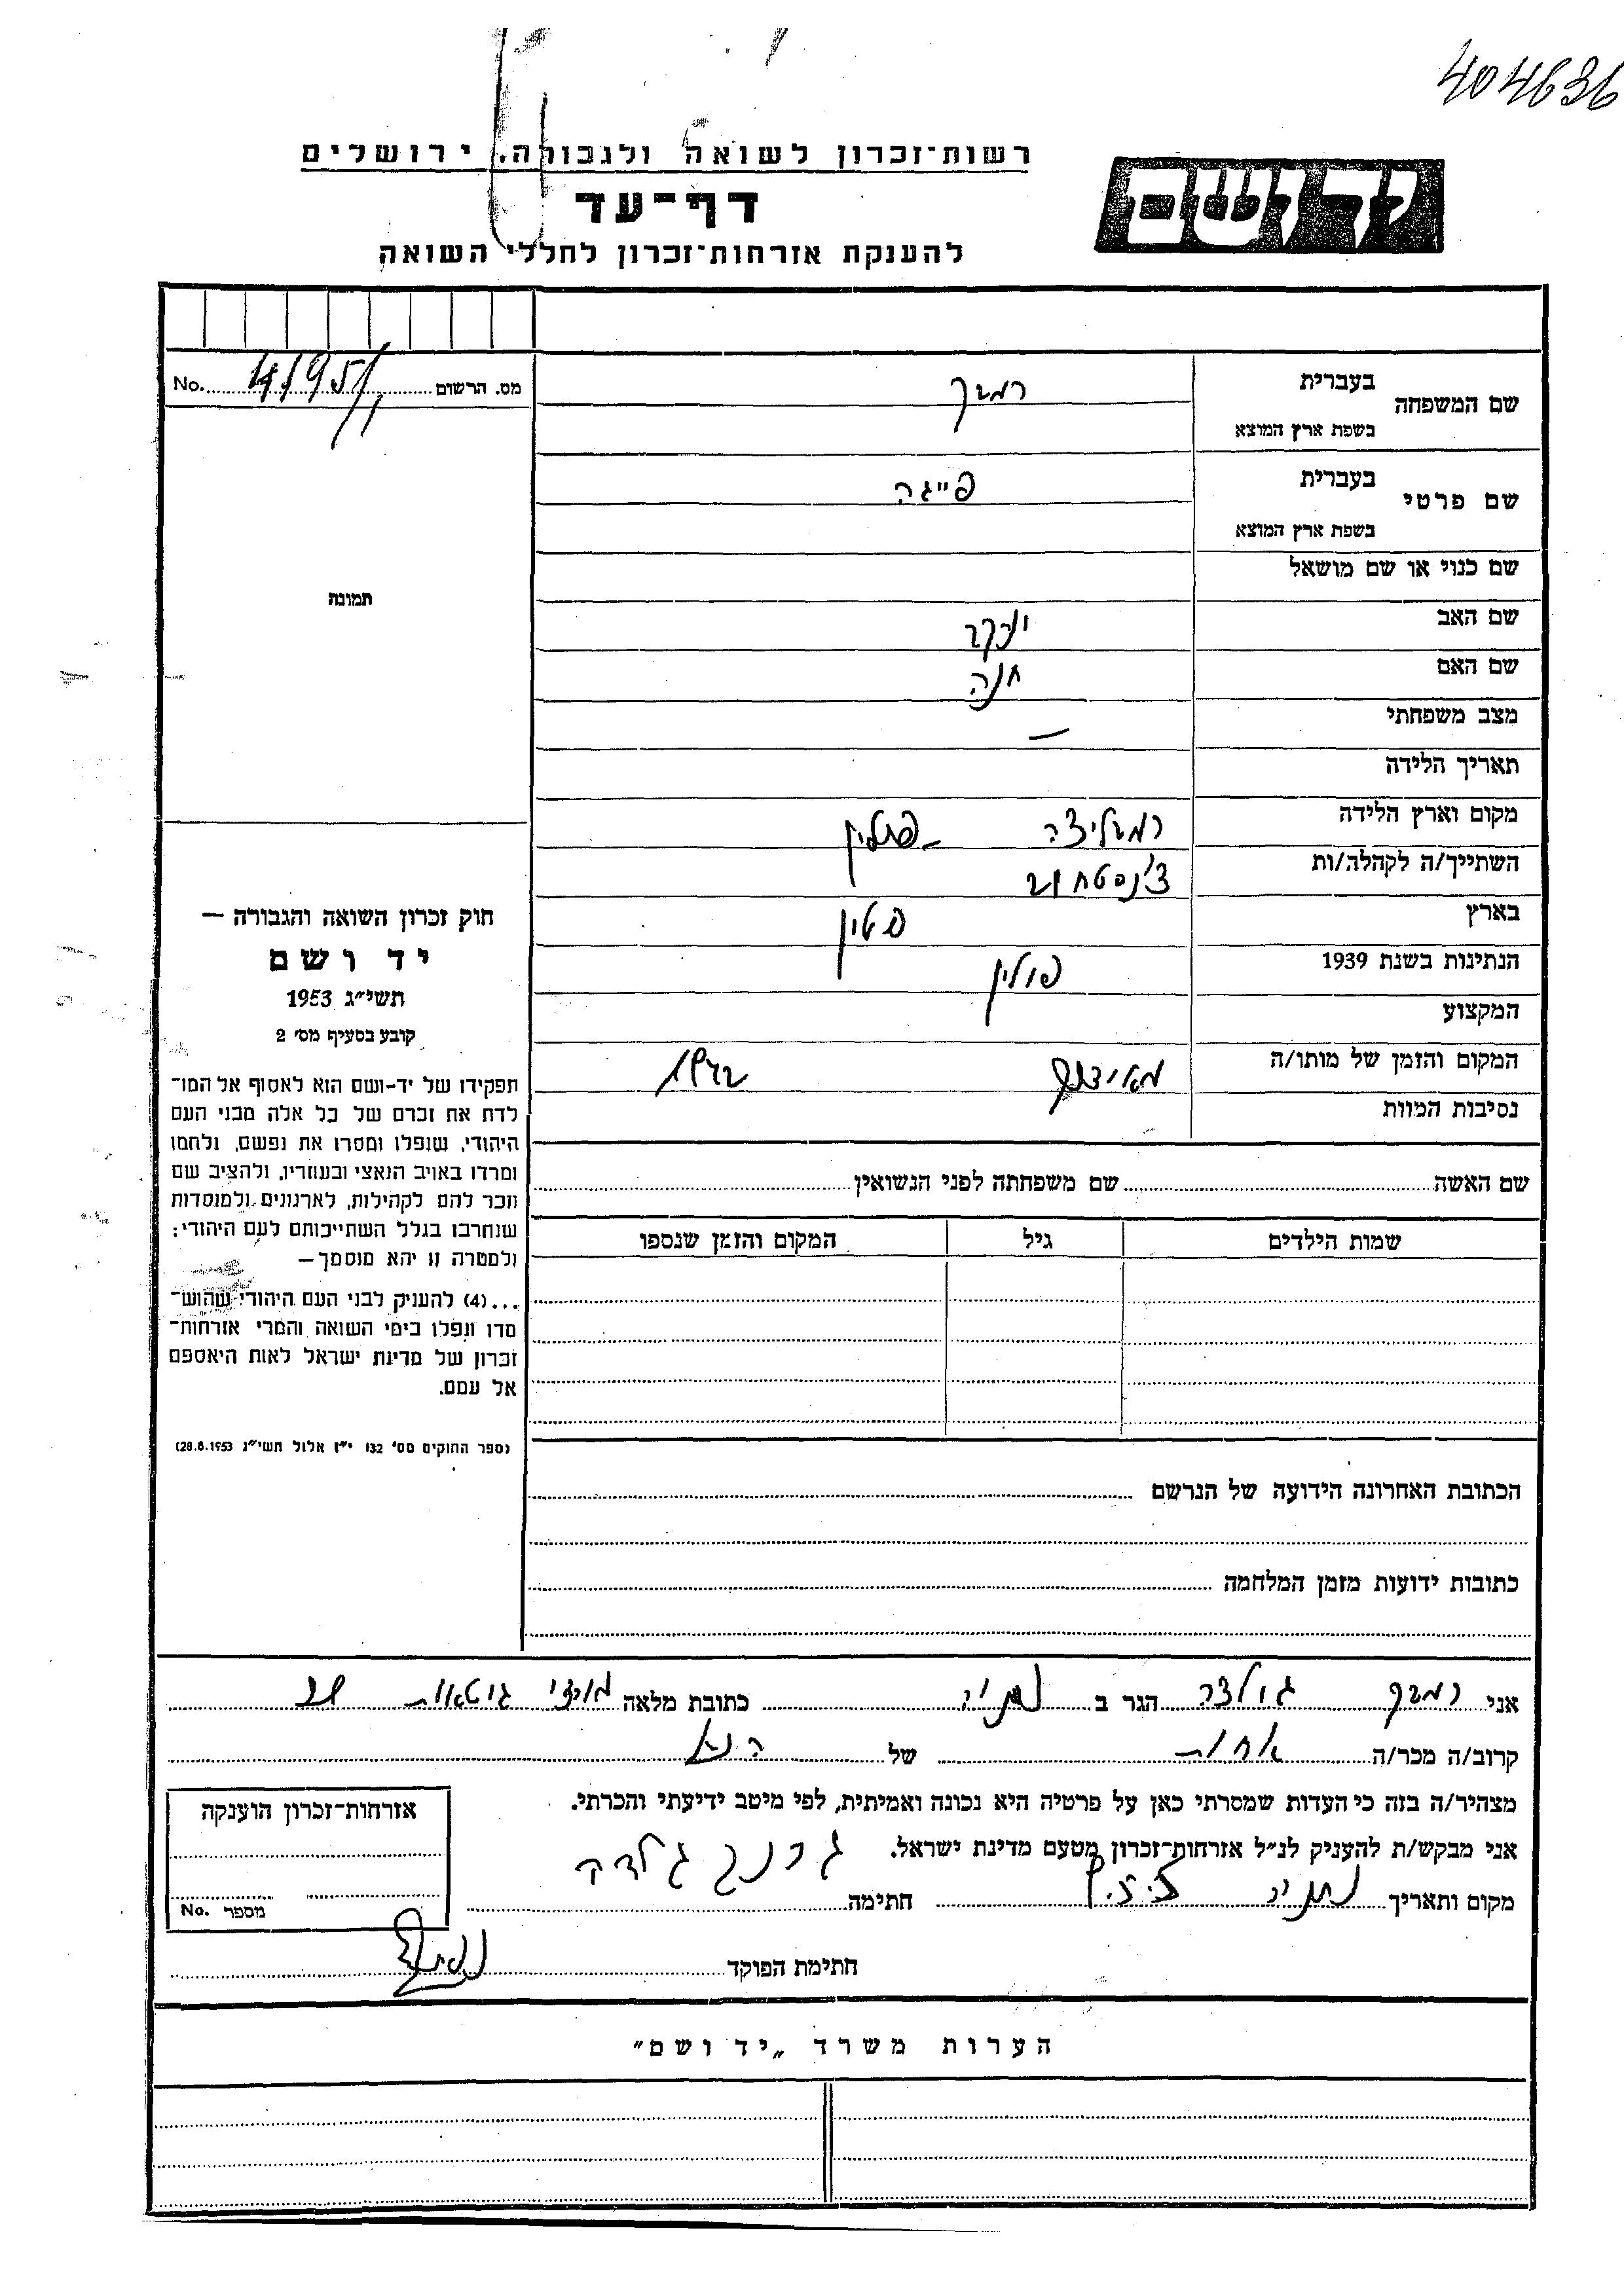 404636
רשות־זכרון לשואה ולגבורה, ירושלים
יד ושם
דף־עד
להענקת אזרחות־זכרון לחללי השואה
מס. הרשום No.
שם המשפחה
בעברית
בשפת ארץ המוצא
שם פרטי
בעברית פייגה
בשפת ארץ המוצא
שם כנוי או שם מושאל
תמונה
שם האב יעקב
שם האם חנה
מצב משפחתי —
תאריך הלידה
מקום וארץ הלידה פולין
השתייך/ה לקהלה/ות צ'נסטחוב
בארץ פולין
הנתינות בשנת 1939 פולין
המקצוע
המקום והזמן של מותו/ה 1942
נסיבות המוות
חוק זכרון השואה והגבורה —
יד ושם
תשי״ג 1953
קובע בסעיף מס׳ 2
תפקידו של יד-ושם הוא לאסוף אל המו־
לדת את זכרם של כל אלה מבני העם
היהודי, שנפלו ומסרו את נפשם, נלחמו
ומרדו באויב הנאצי ובעוזריו, ולהציב שם
וזכר להם לקהילות, לארגונים ולמוסדות
שנחרבו בגלל השתייכותם לעם היהודי;
ולמטרה זו יהא מוסמך—
...(4) להעניק לבני העם היהודי שהוש־
מדו ונפלו בימי השואה והמרי אזרחות־
זכרון של מדינת ישראל לאות היאספם
אל עמם.
(ספר החוקים מס׳ 132 י״ז אלול תשי״ג 28.8.1953)
שם האשה שם משפחתה לפני הנשואין
שמות הילדים גיל המקום והזמן שנספו
הכתובת האחרונה הידועה של הנרשם
כתובות ידועות מזמן המלחמה
אני הגר ב נתניה כתובת מלאה
קרוב/ה מכר/ה אחות של הנ"ל
מצהיר/ה בזה כי העדות שמסרתי כאן על פרטיה היא נכונה ואמיתית, לפי מיטב ידיעתי והכרתי.
אני מבקש/ת להעניק לנ״ל אזרחות־זכרון מטעם מדינת ישראל.
מקום ותאריך נתניה חתימה
חתימת הפוקד
אזרחות־זכרון הוענקה
מספר No.
הערות משרד „יד ושם״